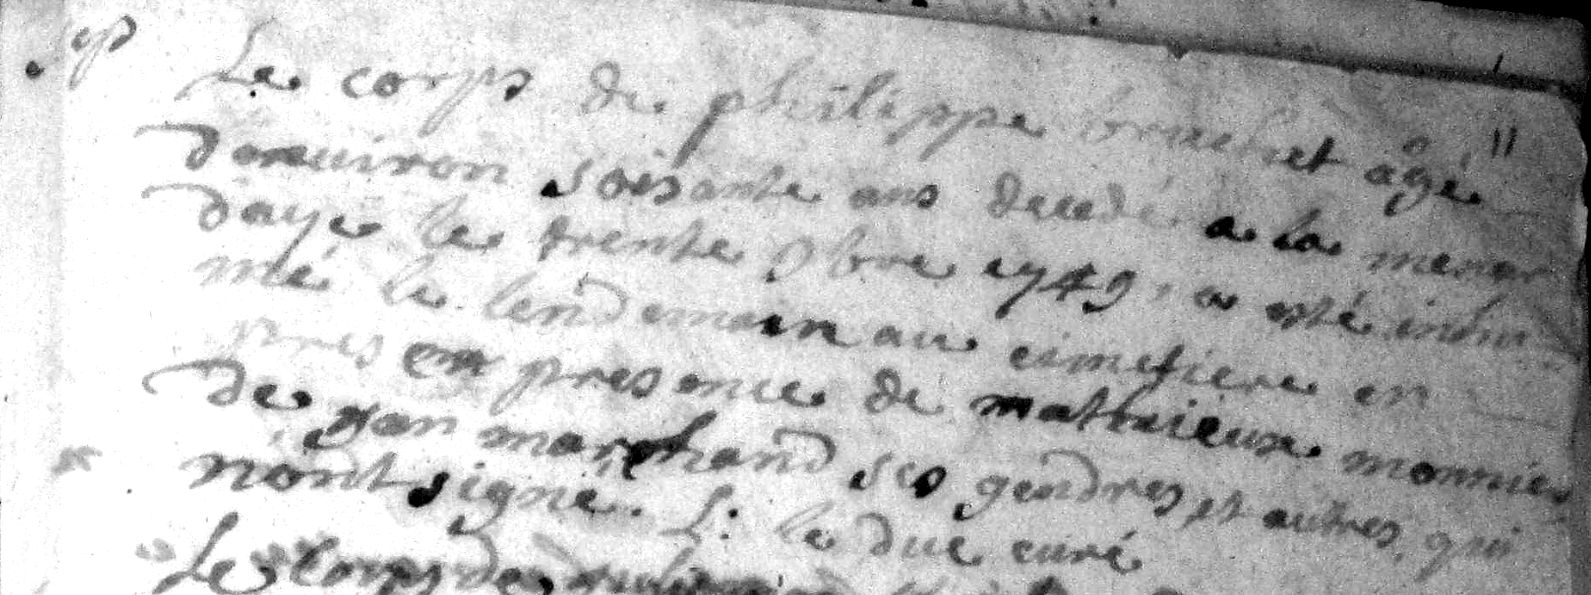 Le corps de philippe bruchet âgé
denuiron soisante ans decedé a la menar
daye le trente 9bre 1749, a esté inhu
mé le lendemain au cimetiere en
presence de mathieux monnier
de jan marchand ses gendres et autres, qui
nont signé. L: le duc curé
Le corps de